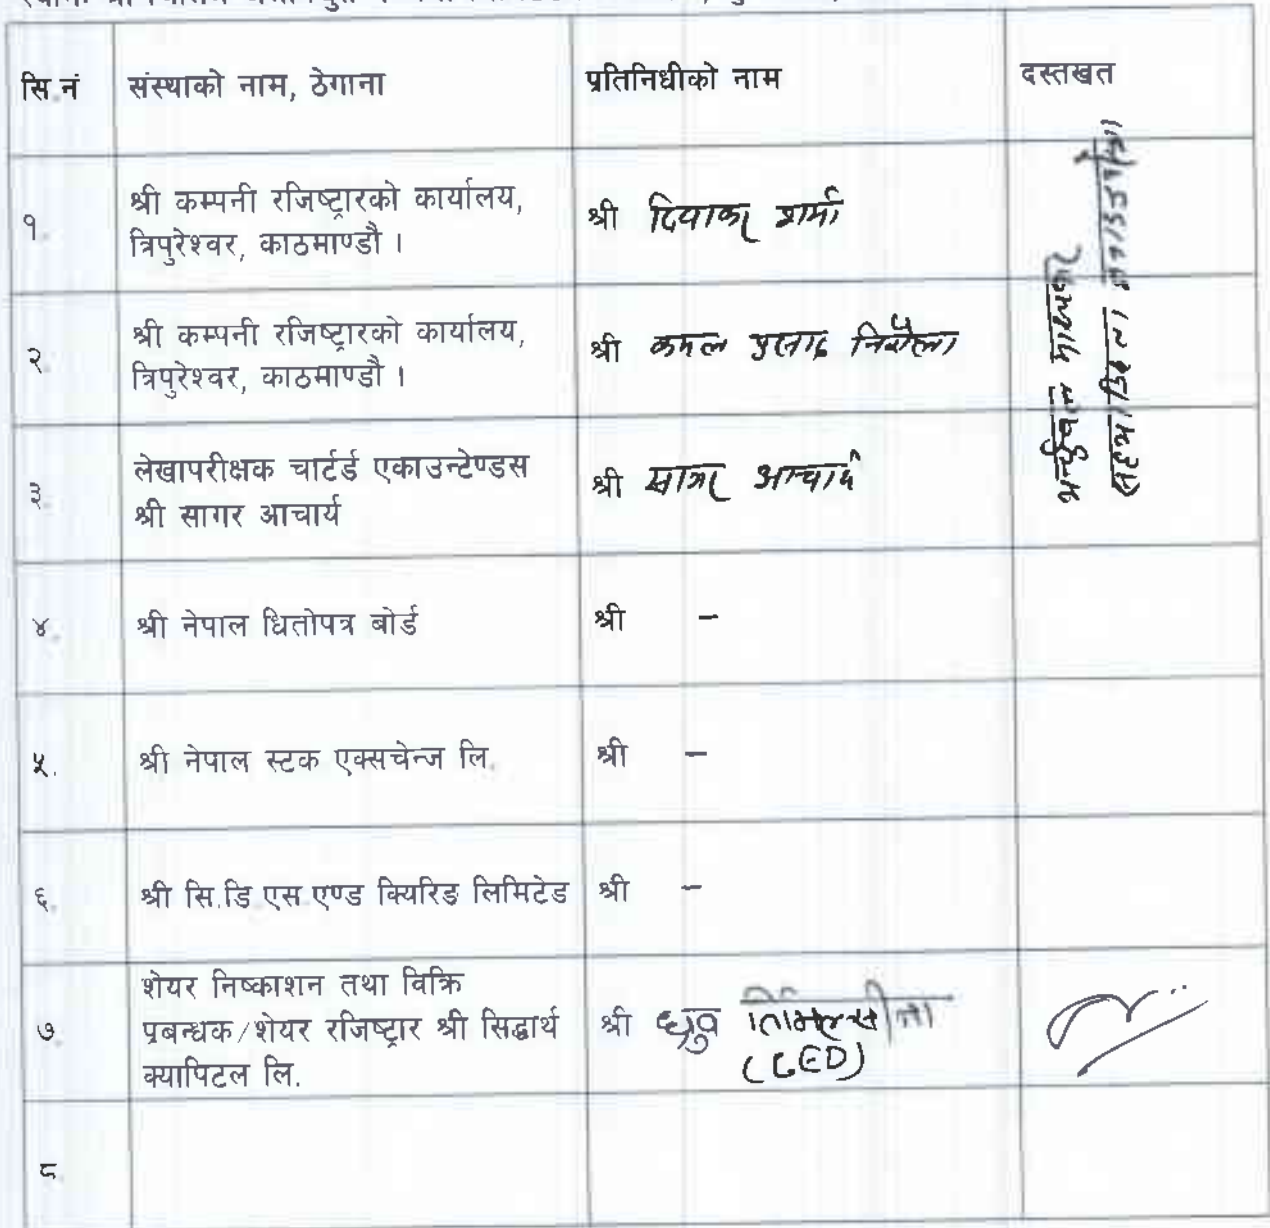 सि.नं संस्थाको नाम, ठेगाना प्रतिनिधीको नाम दस्तखत
१. श्री कम्पनी रजिष्ट्रारको कार्यालय,
त्रिपुरेश्वर, काठमाण्डौ ।
श्री दिवाकर शर्मा
२. श्री कम्पनी रजिष्ट्रारको कार्यालय,
त्रिपुरेश्वर, काठमाण्डौ ।
श्री कमल प्रसाद निरौला
३. लेखापरीक्षक चार्टर्ड एकाउन्टेण्डस
श्री सागर आचार्य
श्री सागर आचार्य
भर्चुवल माध्यमबाट
४. श्री नेपाल धितोपत्र बोर्ड श्री -
५. श्री नेपाल स्टक एक्सचेन्ज लि. श्री -
६. श्री सि.डि.एस.एण्ड क्यिरिङ लिमिटेड श्री -
७. शेयर निष्काशन तथा विक्रि
प्रबन्धक/शेयर रजिष्ट्रार श्री सिद्धार्थ
क्यापिटल लि.
श्री ध्रुव तिमिल्सीना
(CEO)
८